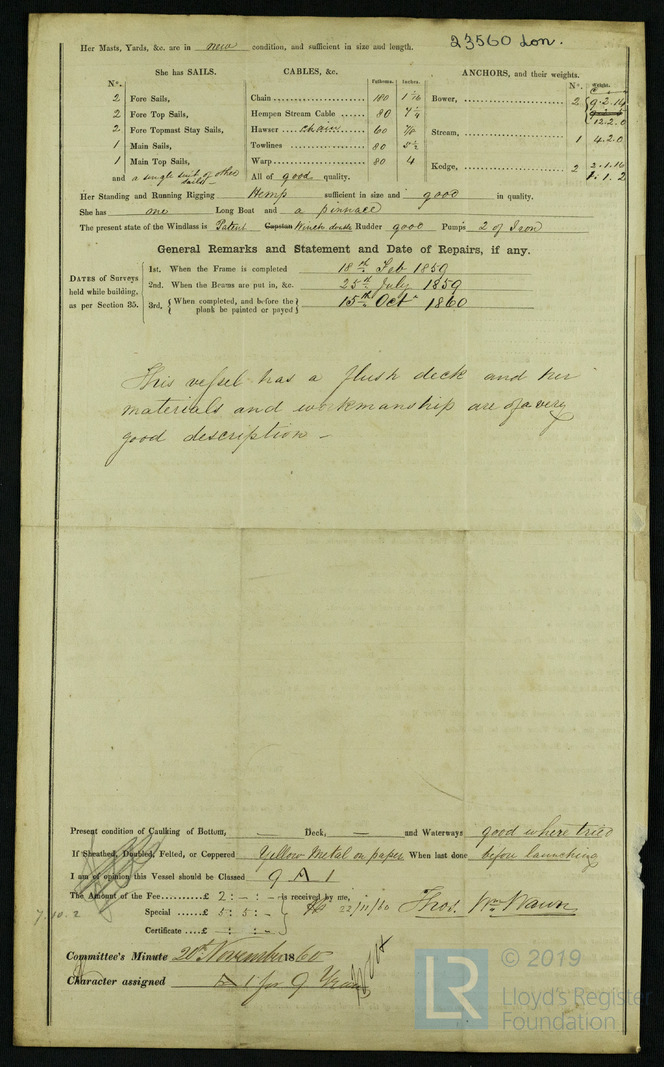 23560 Lon.
Her Masts, Yards, &c. are in new condition, and sufficient in size and length.
She has SAILS. CABLES, &c. ANCHORS, and their weights.
N°. Fathoms. Inches. N°. Weight.
2 Fore Sails, Chain 180 1 1/16 Bower, 2 9.2.14
2 Fore Top Sails, Hempen Stream Cable 80 7 1/2 12.2.0
2 Fore Topmast Stay Sails, Hawser chain 60 7/8 Stream, 1 4.2.0
1 Main Sails, Towlines 80 5 1/2
1 Main Top Sails, Warp 80 4 Kedge, 2 2.1.14
and a single suit of other sails All of good quality. 1.1.2
Her Standing and Running Rigging Hemp sufficient in size and good in quality.
She has one Long Boat and a pinnace
The present state of the Windlass is Patent Capstan Winch Rudder good Pumps 2 of Iron
General Remarks and Statement and Date of Repairs, if any.
DATES of Surveys held while building, as per Section 35.
1st. When the Frame is completed 18th Feb 1859
2nd. When the Beams are put in, &c. 25th July 1859
3rd. { When completed, and before the plank be painted or payed } 15th Oct 1860
This vessel has a flush deck and her
materials and workmanship are of a very
good description -
Present condition of Caulking of Bottom, — Deck, — and Waterways good where tried
If Sheathed, Doubled, Felted, or Coppered Yellow Metal on paper When last done before launching
I am of opinion this Vessel should be Classed 9 A 1
The Amount of the Fee £ 2 : - : - is received by me,
7.10.2 Special £ 5 : 5 : - 22/11/60 Thos. Wm Wawn
Certificate £ - : - : -
Committee's Minute 20th November 1860
Character assigned A 1 for 9 Years
LR
© 2019
Lloyd's Register
Foundation